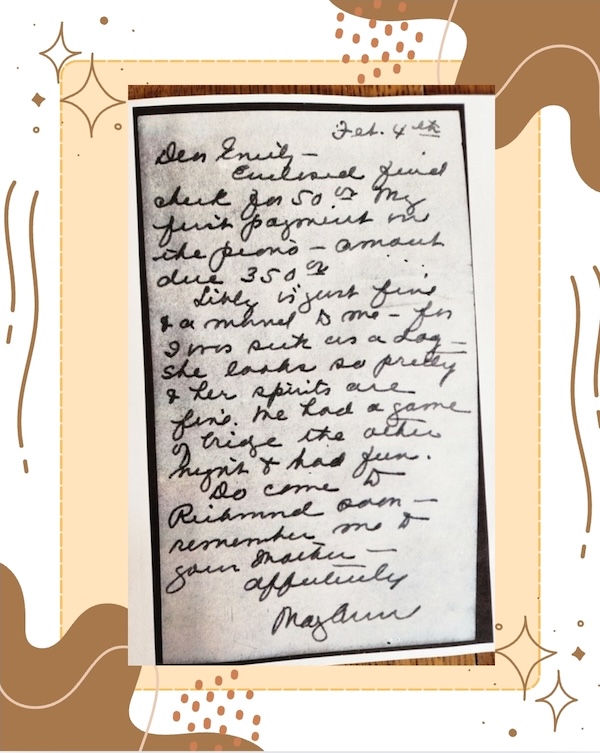 Feb. 4th
Dear Emily –
Enclosed find
check for 50 00 My
first payment on
the piano – amount
due 350 00
Libby is just fine
& a marvel to me – for
I was sick as a dog –
she looks so pretty
& her spirits are
fine. We had a game
of bridge the other
night & had fun.
Do come to
Richmond soon –
remember me to
your Mother –
affectionately
Mary Ann